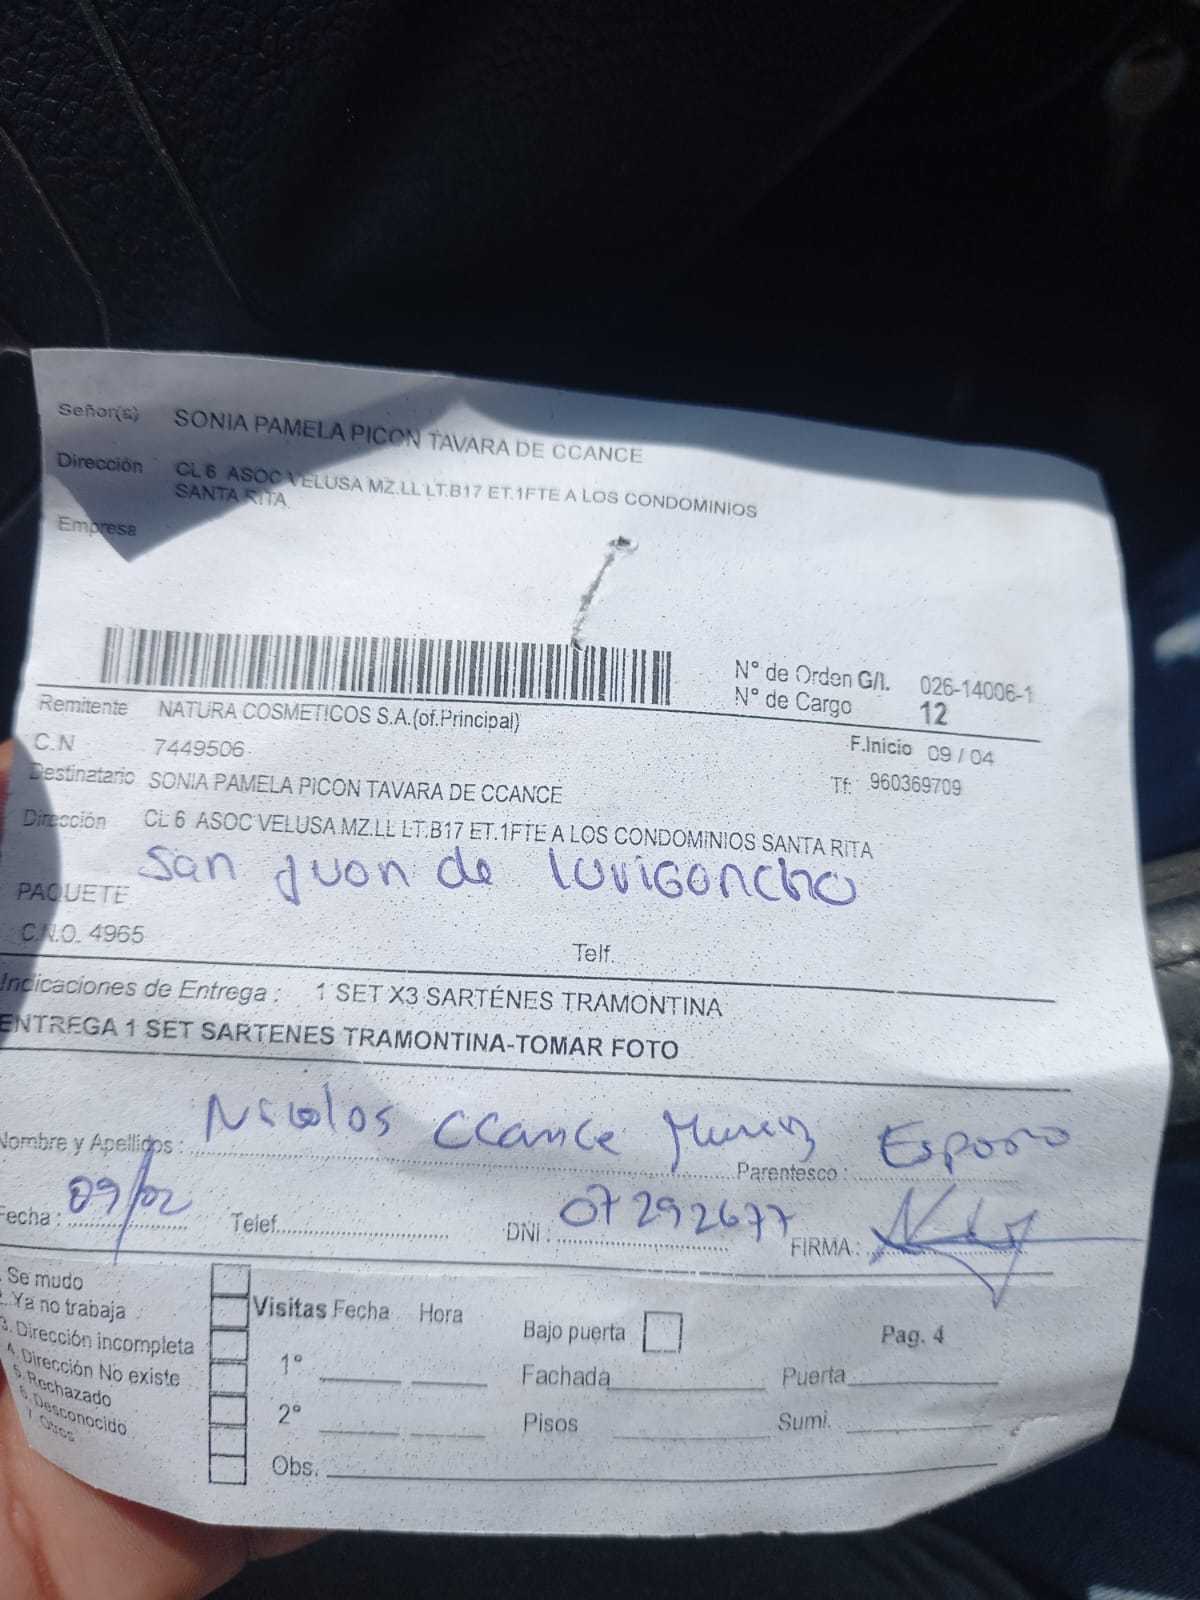 Señor(s) SONIA PAMELA PICON TAVARA DE CCANCE
Dirección CL 6 ASOC VELUSA MZ.LL LT.B17 ET.1FTE A LOS CONDOMINIOS
SANTA RITA
Empresa
N° de Orden G/I. 026-14006-1
N° de Cargo 12
Remitente NATURA COSMETICOS S.A.(of.Principal)
F.Inicio 09 / 04
C.N 7449506
Tf: 960369709
Destinatario SONIA PAMELA PICON TAVARA DE CCANCE
Dirección CL 6 ASOC VELUSA MZ.LL LT.B17 ET.1FTE A LOS CONDOMINIOS SANTA RITA
San Juan de Lurigancho
PAQUETE
C.N.O. 4965
Telf.
Indicaciones de Entrega : 1 SET X3 SARTÉNES TRAMONTINA
ENTREGA 1 SET SARTENES TRAMONTINA-TOMAR FOTO
Nombre y Apellidos : Nicolos CCance Parentesco : Esposo
Fecha : 09/02 Telef. DNI : 07292677 FIRMA :
Se mudo
Ya no trabaja
3. Dirección incompleta
4. Dirección No existe
5. Rechazado
6. Desconocido
7. Otros
Visitas Fecha Hora
1°
2°
Obs.
Bajo puerta
Pag. 4
Fachada Puerta
Pisos Sumi.